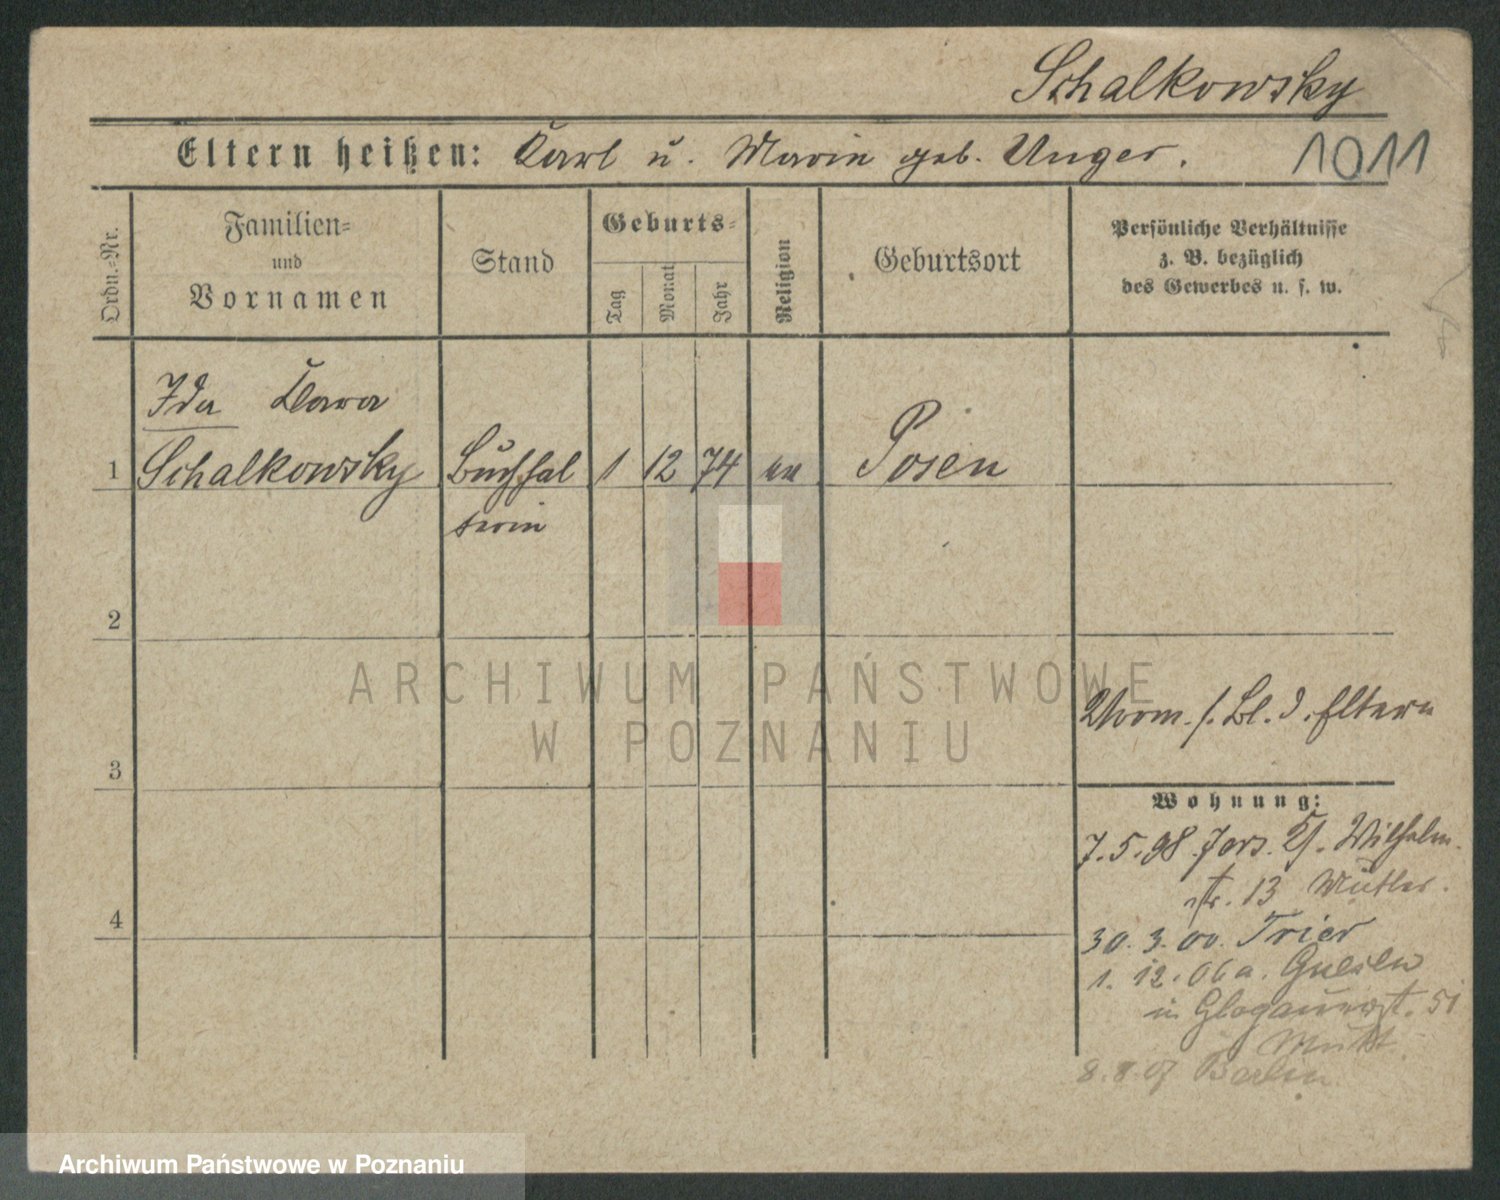 Schalkowsky
Eltern heißen: Karl u. Marie geb. Unger.
1011
Ordn.-Nr.
Familien-
und
Vornamen
Stand
Geburts-
Tag
Monat
Jahr
Religion
Geburtsort
Persönliche Verhältnisse
z. B. bezüglich
des Gewerbes u. s. w.
Ida Klara
1 Schalkowsky Buchhal 1 12 74 ev Posen
terin
2
ARCHIWUM PAŃSTWOWE
W POZNANIU
s. Bl. d. Eltern
3
Wohnung:
7.5.98. Jers. Wilhelm
str. 13 Mutter.
4
30. 3. 00. Trier
1. 12. 06 a. Gnesen
in Glogauerst. 51
Mutt.
8.8.07 Berlin
Archiwum Państwowe w Poznaniu